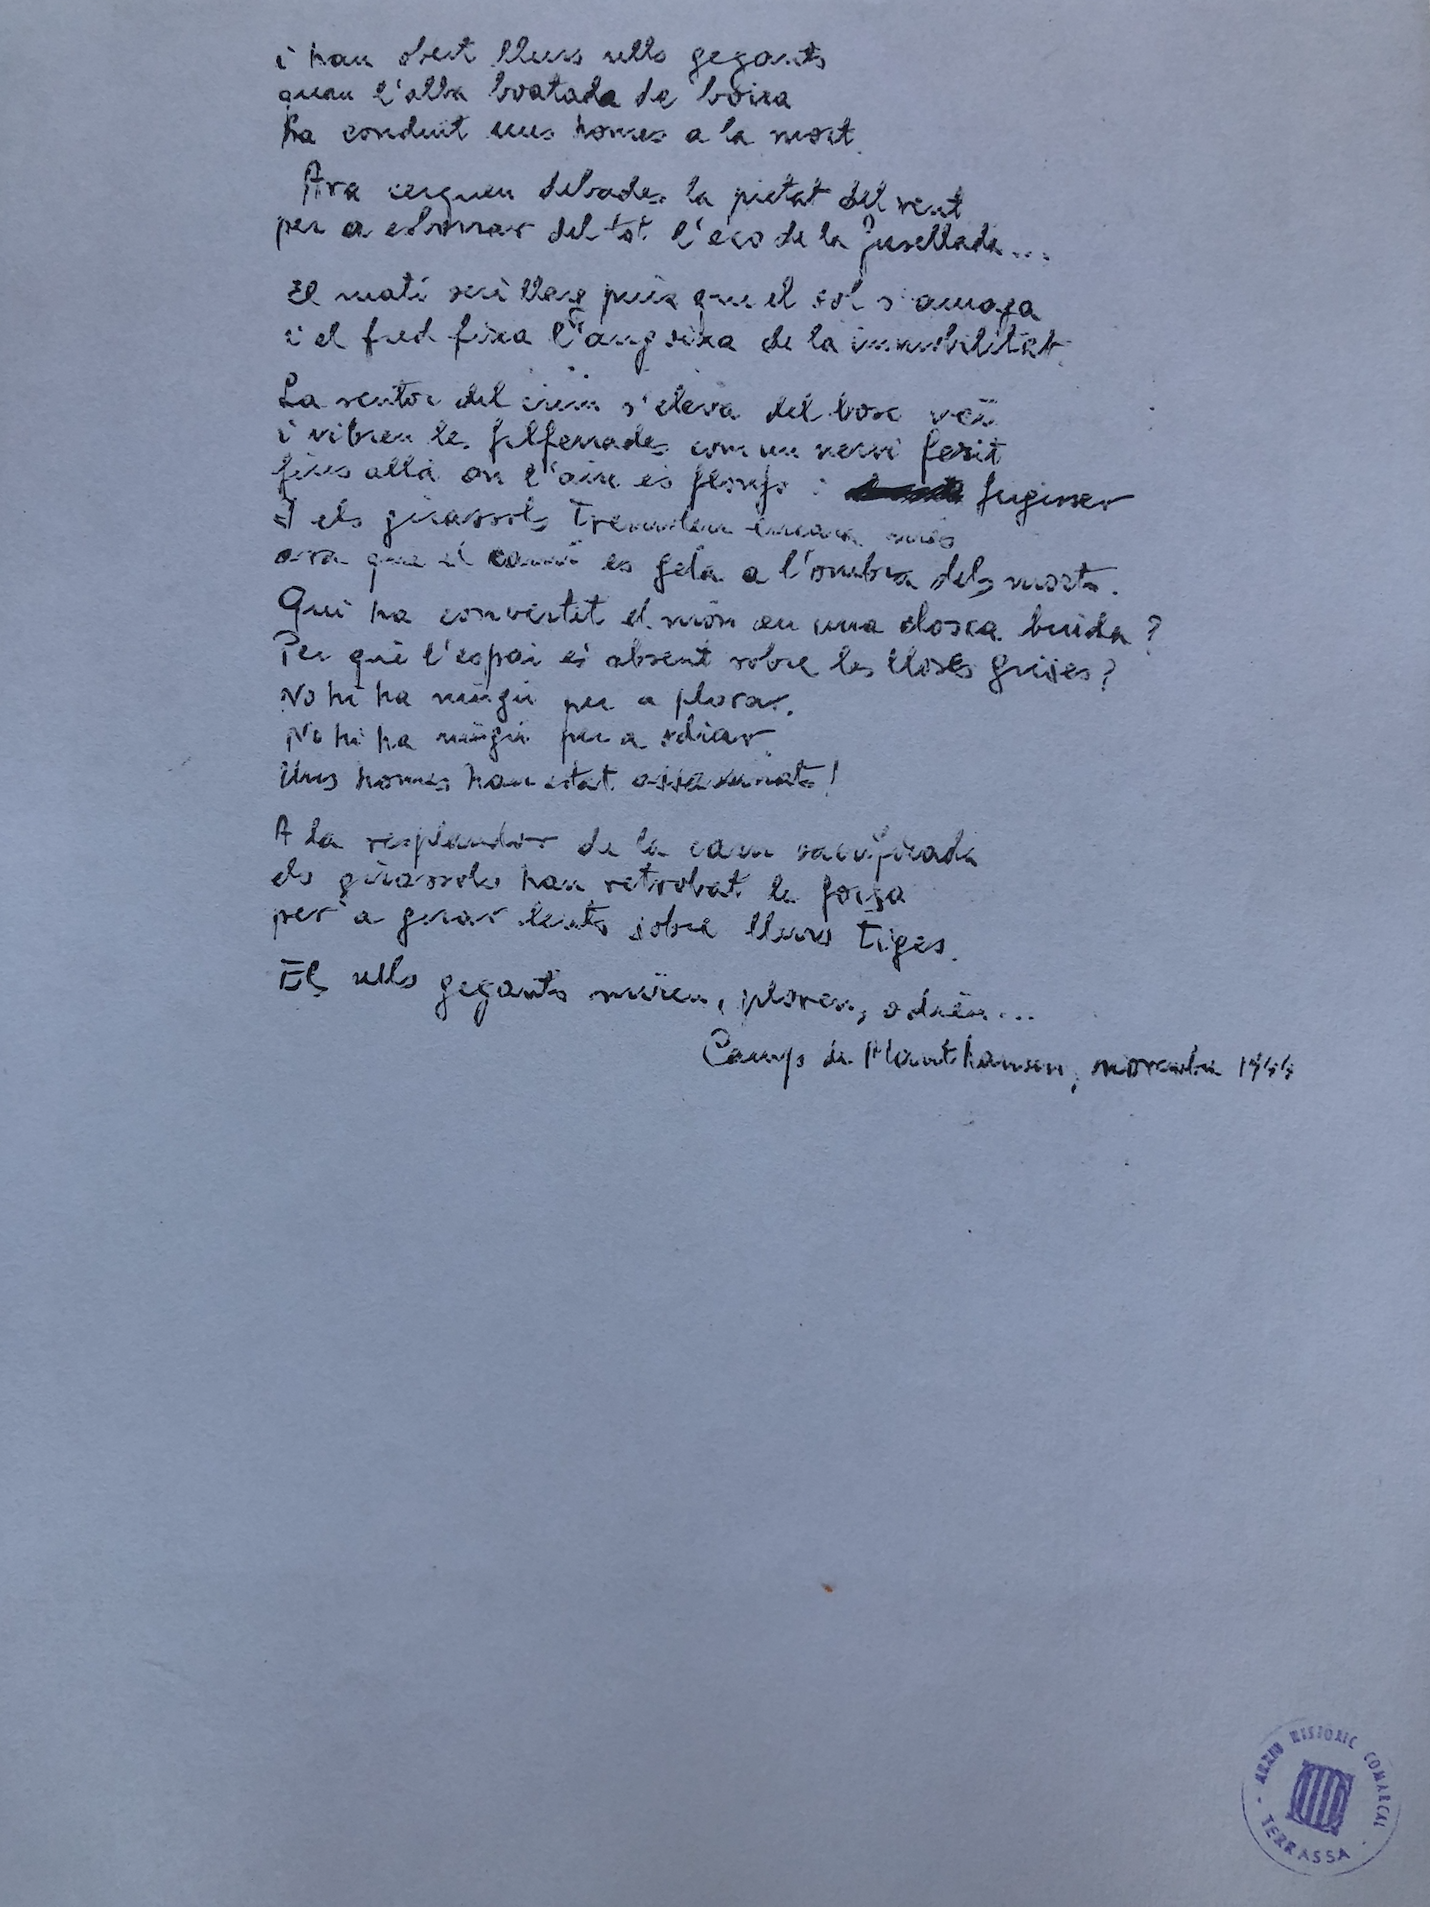 i han obert llurs ulls gegants
quan l'alba boatada de boira
ha conduït uns homes a la mort.
Ara cerquen debades la pietat del vent
per a esborrar del tot l'eco de la fusellada...
El matí serà llarg puix que el sol s'amaga
i el fred fixa l'angoixa de la immobilitat.
La sentor del crim s'eleva del bosc veí
i vibren les filferrades com un nervi ferit
fins allà on l'aire és flonjo i fugisser
I els girassols tremolen encara més
ara que el camí es gela a l'ombra dels morts.
Qui ha convertit el món en una closca buida?
Per què l'espai és absent sobre les lloses grises?
No hi ha ningú per a plorar.
No hi ha ningú per a odiar.
Uns homes han estat assassinats!
A la resplandor de la carn sacrificada
els girassols han retrobat la força
per a girar lents sobre llurs tiges.
Els ulls gegants miren, ploren, odien...
Camp de Mauthausen, novembre 1944
ARXIU HISTÒRIC COMARCAL
TERRASSA